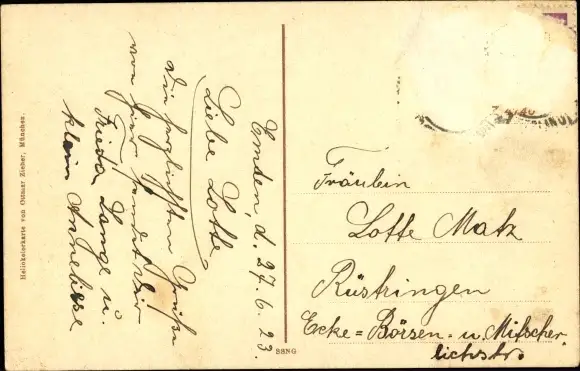 Emden, d. 27.6.23.
Liebe Lotte
Die herzlichsten Grüße
von hier sendet Dir
Frieda Lange u.
klein Anneliese
Heliokolorkarte von Ottmar Zieher, München.
SSNG
Fräulein
Lotte Matz
Rüstringen
Ecke=Börsen- u. Mitscher-
lichstr.